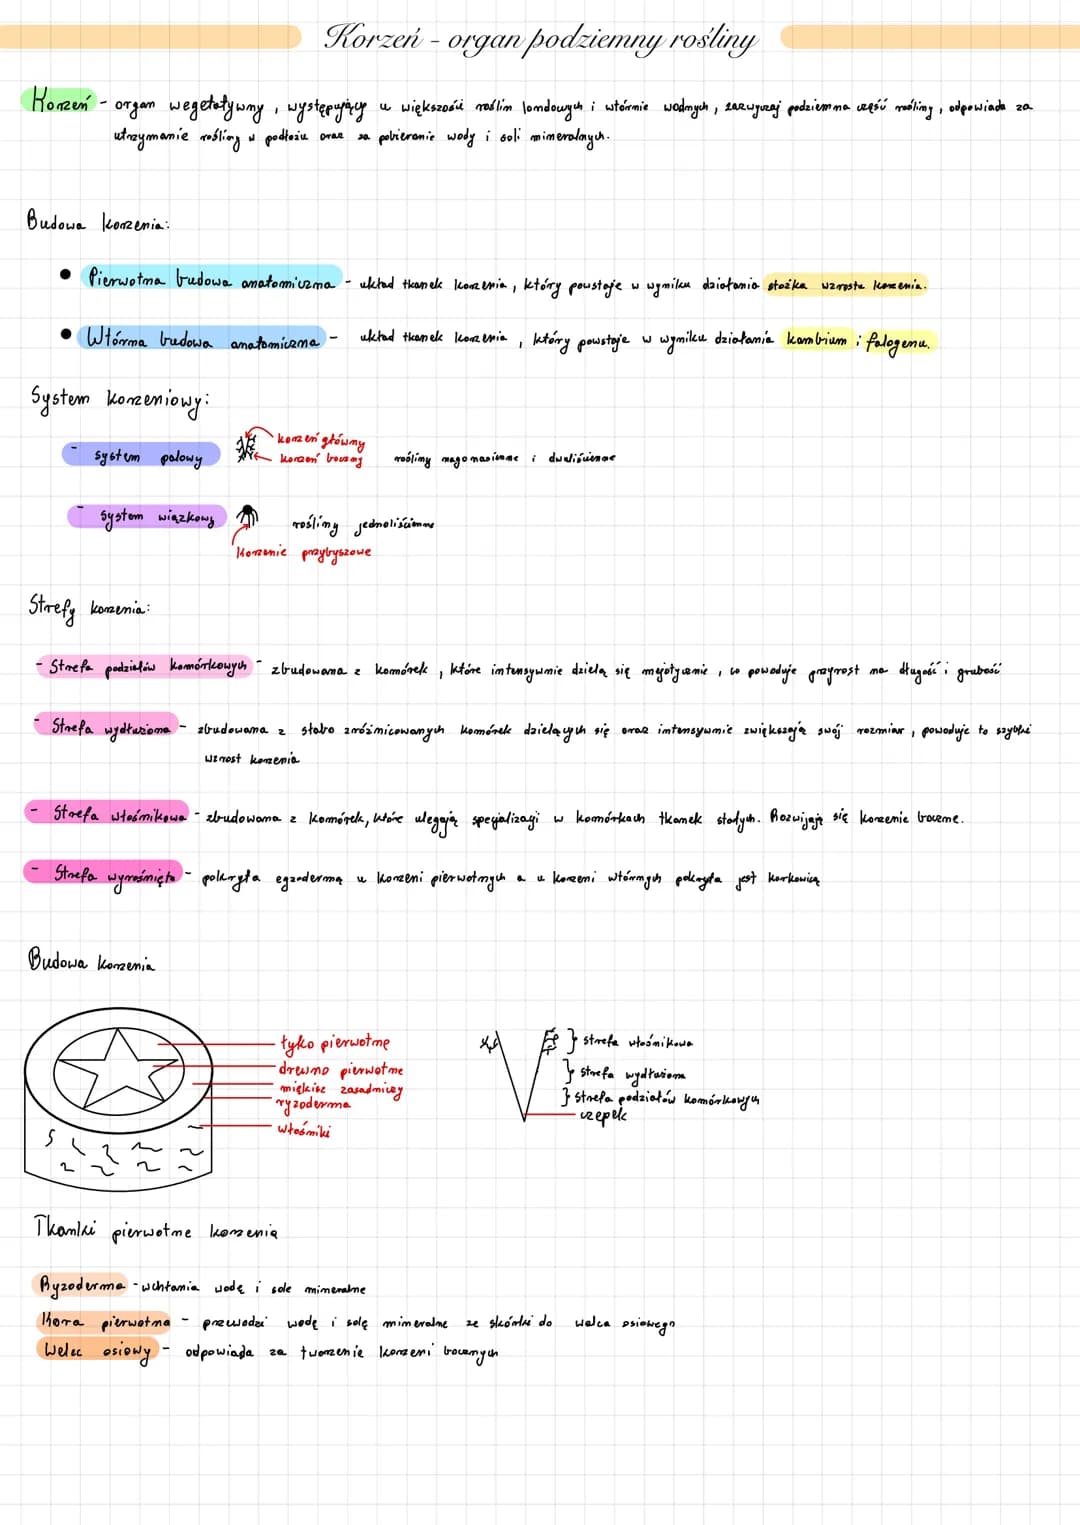 Korzeń - organ podziemny rośliny
Korzeń - organ wegetatywny, występujący u większości roślin lądowych i wtórnie wodnych, zazwyczaj podziemna część rośliny, odpowiada za
utrzymanie rośliny w podłożu oraz za pobieranie wody i soli mineralnych.
Budowa korzenia:
Pierwotna budowa anatomiczna - układ tkanek korzenia, który powstaje w wyniku działania stożka wzrostu korzenia.
Wtórna budowa anatomiczna - układ tkanek korzenia, który powstaje w wyniku działania kambium i felogenu.
System korzeniowy:
- system palowy
korzeń główny
korzeń boczny
rośliny nagonasienne i dwuliścienne
- system wiązkowy
rośliny jednoliścienne
korzenie przybyszowe
Strefy korzenia:
- Strefa podziałów komórkowych - zbudowana z komórek, które intensywnie dzielą się mejotycznie, co powoduje przyrost na długość i grubość
- Strefa wydłużiona - zbudowana z słabo zróżnicowanych komórek dzielących się oraz intensywnie zwiększają swój rozmiar, powoduje to szybki
wzrost korzenia
- Strefa włośnikowa - zbudowana z komórek, które ulegają specjalizacji w komórkach tkanek stałych. Rozwijają się korzenie boczne.
- Strefa wyrośnięta - pokryta egzodermą u korzeni pierwotnych a u korzeni wtórnych pokryta jest korkowicą
Budowa korzenia
łyko pierwotne
drewno pierwotne
miękisz zasadniczy
ryzoderma
włośniki
} strefa włośnikowa
} strefa wydłużiona
} strefa podziałów komórkowych
czepek
Tkanki pierwotne korzenia
Ryzoderma - wchłania wodę i sole mineralne
Kora pierwotna - przewodzi wodę i solę mineralne ze skórki do walca osiowego
Walec osiowy - odpowiada za tworzenie korzeni bocznych